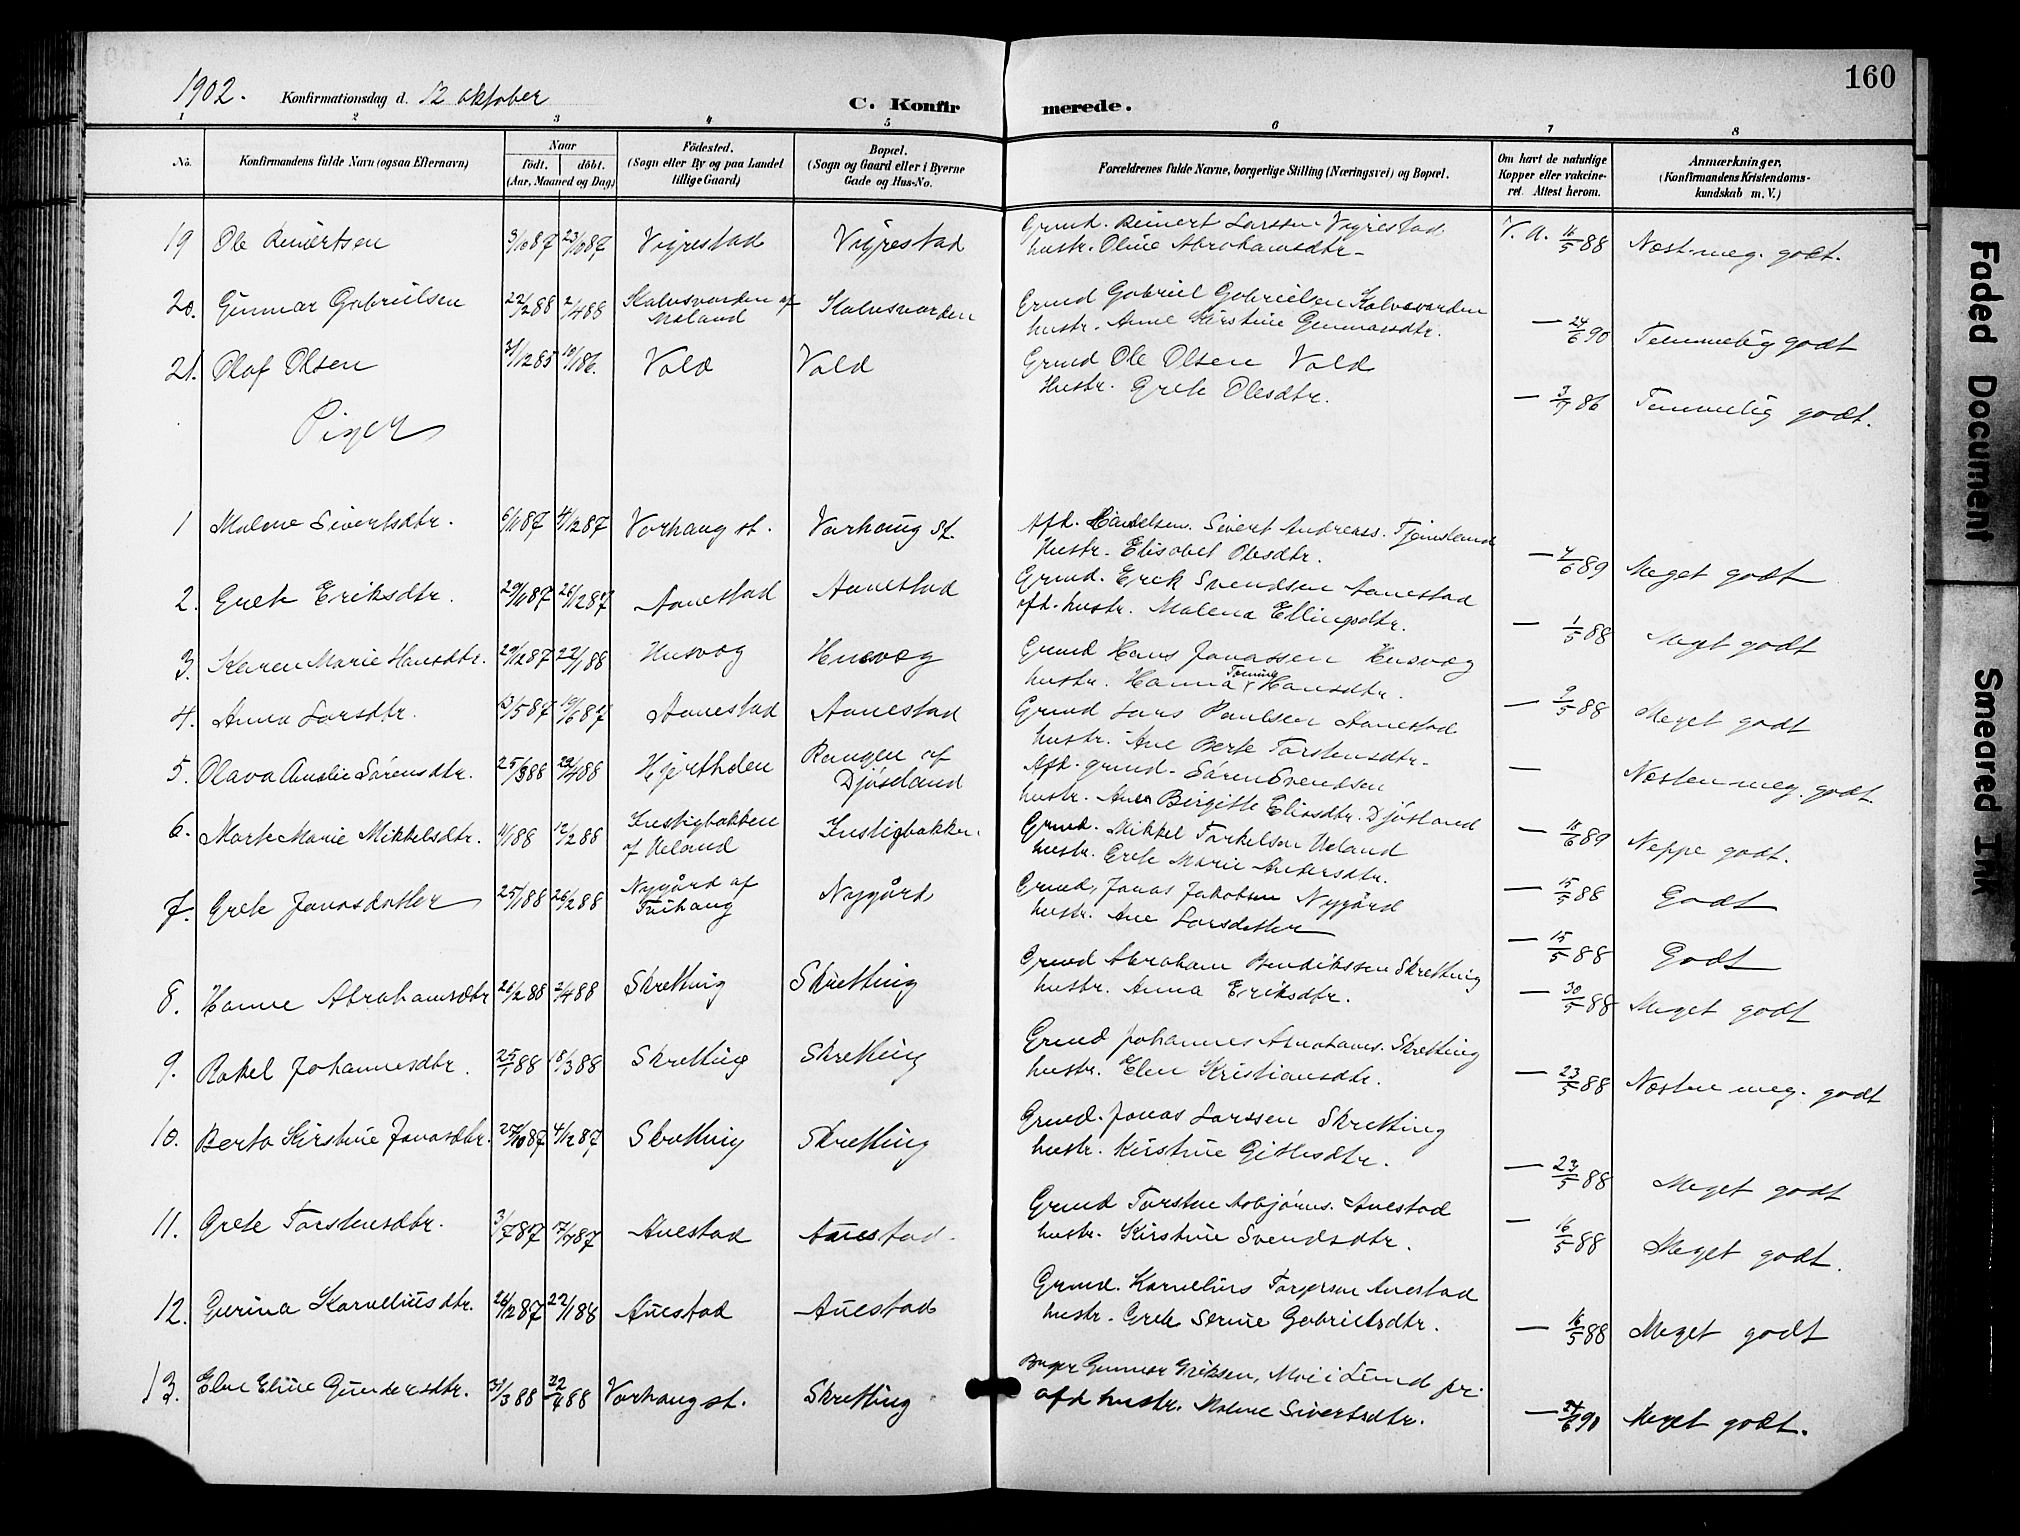 160
1902. Konfirmationsdag d. 12 oktober
C. Konfirmerede.
1 2 3 4 5 6 7 8
No. Konfirmandens fulde Navn (ogsaa Efternavn) Naar født. døbt. (Aar, Maaned og Dag) Fødested. (Sogn eller By og paa Landet tillige Gaard) Bopæl. (Sogn og Gaard eller i Byerne Gade og Hus-No. Forældrenes fulde Navne, borgerlige Stilling (Næringsvei) og Bopæl. Om havt de naturlige Kopper eller vakcineret. Attest herom. Anmærkninger, (Konfirmandens Kristendomskundskab m. V.)
19 Ole Reinertsen 3/10 87 23/10 87 Vigrestad Vigrestad Grmd. Reinert Larssen Vigrestad hustr. Oline Abrahamsdtr. V. A. 16/5 88 Næst. meg. godt.
20. Gunnar Gabrielsen 22/2 88 2/4 88 Kalvsvarden af Mæland Kalvsvarden Grmd Gabriel Gabrielsen Kalvsvarden hustr. Anne Kirstine Gunnarsdtr. — 24/6 90 Temmelig godt
21. Olaf Olsen 31/12 85 10/1 86. Vold Vold Grmd Ole Olsen Vold Hustr. Grete Olesdtr. — 3/7 86 Temmelig godt.
Piger
1 Malene Sivertsdtr. 6/11 87 4/12 87 Varhaug st. Varhaug st. Afd. Handelsm. Sivert Andreass. Tjemsland Hustr. Elisabet Olesdtr. — 4/6 89 Meget godt
2. Grete Eriksdtr. 29/11 87 26/12 87 Aanestad Aanestad Grmd. Erik Svendsen Aanestad afd. hustr. Malena Ellingsdtr. — 1/5 88 Meget godt
3. Karen Marie Hansdtr. 29/12 87 22/1 88 Husvæg Husvæg Grmd Hans Jonassen Husvæg hustr. Hanna Tomine Hansdtr. — 9/5 88 Meget godt
4. Anna Larsdtr. 13/5 87 19/6 87 Aanestad Aanestad Grmd Lars Paulsen Aanestad hustr. Ane Berte Torstensdtr. —
5. Olava Amalie Sørensdtr. 25/3 88 22/4 88 Rangen af Djøsland Afd. grmd. Søren Svendsen hustr. Ane Birgitte Eliasdtr. Djøsland — 18/6 89 Næsten meg. godt.
6. Marte Marie Mikkelsdtr. 11/1 88 12/2 88 Instigbakken af Ueland Instigbakken. Grmd. Mikkel Torkelsen Ueland hustr. Grete Marie Andersdtr. — 15/5 88 Neppe godt.
7. Grete Jonasdatter 25/1 88 26/2 88 Nygård af Tvihaug Nygård Grmd, Jonas Jakobsen Nygård hustr. Ane Larsdatter — 15/5 88 Godt
Godt
8. Hanne Abrahamsdtr 26/2 88 2/4 88 Skretting Skretting Grmd Abraham Bendikssen Skretting hustr. Anna Eriksdtr. — 30/5 88 Meget godt
9. Rakel Johannesdtr. 25/1 88 18/3 88 Skretting Skretting Grmd Johannes Abrahams. Skretting hustr. Elen Kristiansdtr. — 23/5 88 Næsten meg. godt
10. Berta Kirstine Jonasdtr. 27/10 87 4/12 87 Skretting Skretting Grmd. Jonas Larssen Skretting hustr. Kirstine Gitlesdtr. — 23/5 88 Meget godt
11. Grete Torstensdtr. 3/7 87 17/7 87 Auestad Auestad Grmd Torsten Asbjørns. Auestad hustr. Kirstine Svendsdtr. — 16/5 88 Meget godt.
12. Gurina Korneliusdtr. 26/12 87 22/1 88 Auestad Auestad Grmd. Kornelius Torgersen Auestad hustr. Grete Serine Gabrielsdtr. — 16/5 88 Meget godt
13. Elen Eline Gunnersdtr. 31/3 88 22/4 88 Varhaug st. Skretting Gunnar Eriksen, Moi i Lund pr. afd hustr. Malene Sivertsdtr. — 24/6 90 Meget godt.
Faded Document
Smeared Ink